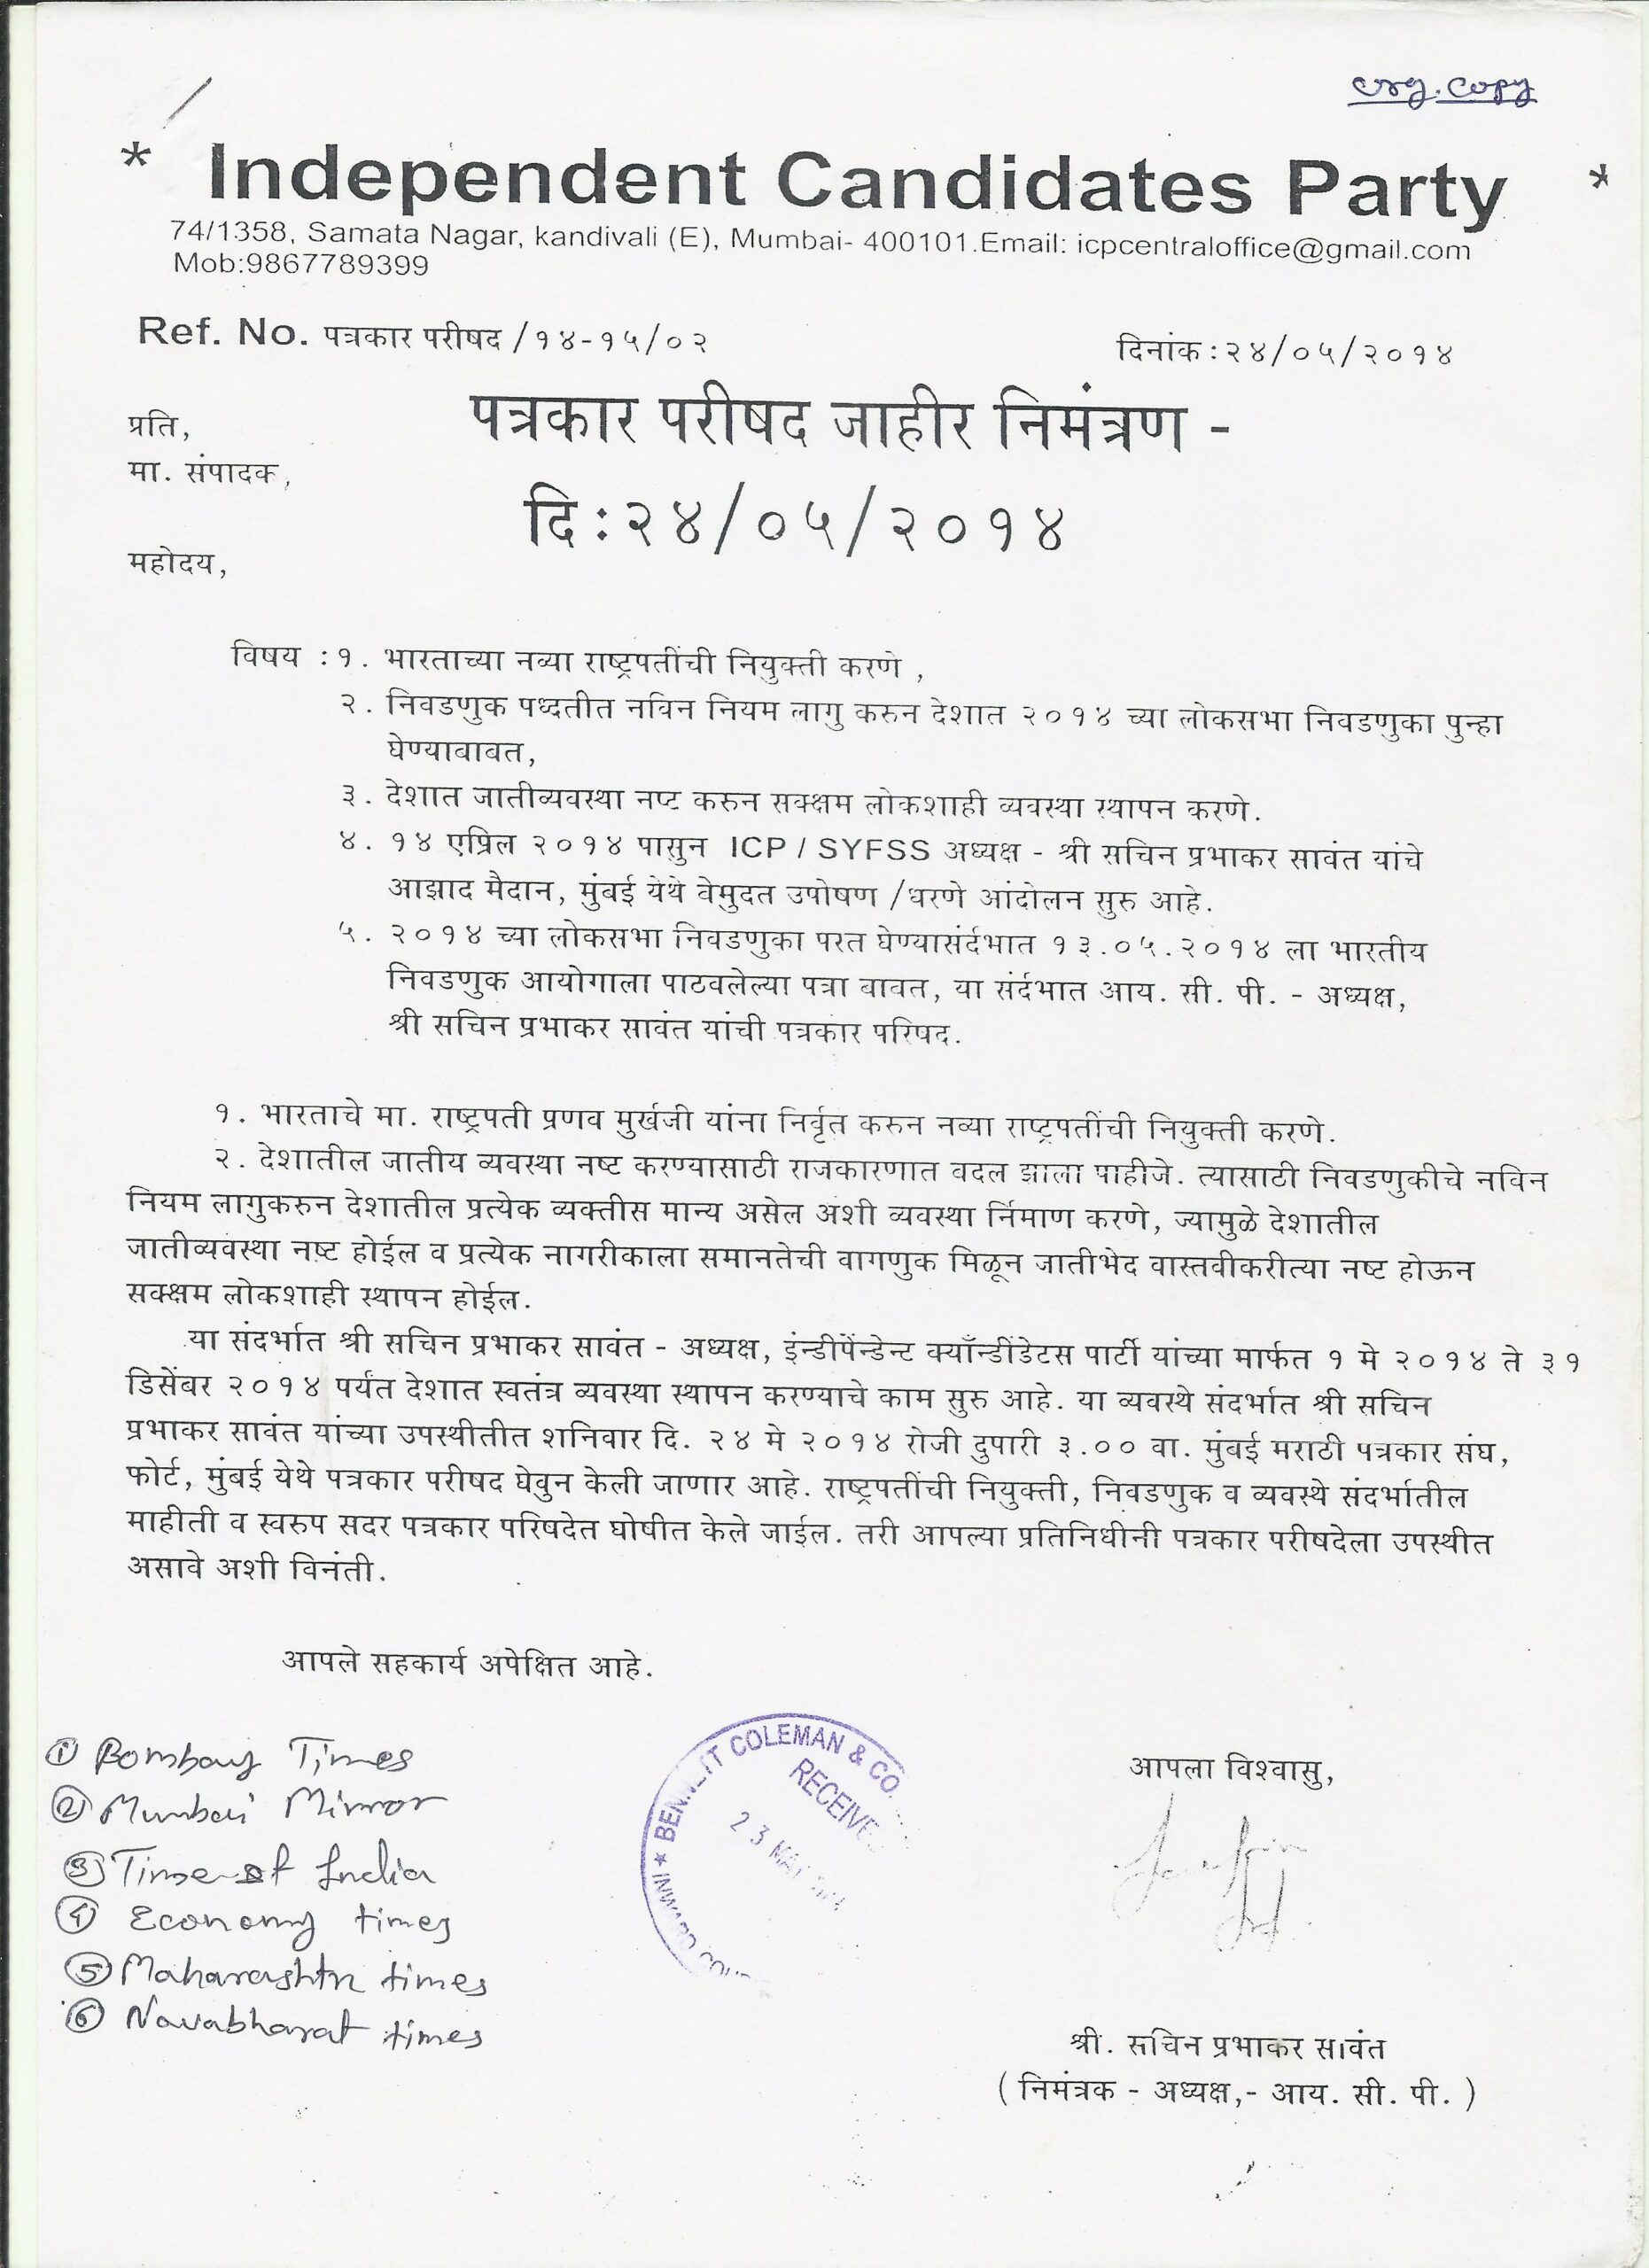 org. copy
* Independent Candidates Party *
74/1358, Samata Nagar, kandivali (E), Mumbai- 400101.Email: icpcentraloffice@gmail.com
Mob:9867789399
Ref. No. पत्रकार परीषद /१४-१५/०२
दिनांक:२४/०५/२०१४
पत्रकार परीषद जाहीर निमंत्रण -
प्रति,
मा. संपादक,
दि:२४/०५/२०१४
महोदय,
विषय : १. भारताच्या नव्या राष्ट्रपतींची नियुक्ती करणे ,
२. निवडणुक पध्दतीत नविन नियम लागु करुन देशात २०१४ च्या लोकसभा निवडणुका पुन्हा
घेण्याबाबत,
३. देशात जातीव्यवस्था नष्ट करुन सक्षम लोकशाही व्यवस्था स्थापन करणे.
४. १४ एप्रिल २०१४ पासुन ICP / SYFSS अध्यक्ष - श्री सचिन प्रभाकर सावंत यांचे
आझाद मैदान, मुंबई येथे बेमुदत उपोषण /धरणे आंदोलन सुरु आहे.
५. २०१४ च्या लोकसभा निवडणुका परत घेण्यासंर्दभात १३.०५.२०१४ ला भारतीय
निवडणुक आयोगाला पाठवलेल्या पत्रा बाबत, या संर्दभात आय. सी. पी. - अध्यक्ष,
श्री सचिन प्रभाकर सावंत यांची पत्रकार परिषद.
१. भारताचे मा. राष्ट्रपती प्रणव मुर्खजी यांना निर्वृत करुन नव्या राष्ट्रपतींची नियुक्ती करणे.
२. देशातील जातीय व्यवस्था नष्ट करण्यासाठी राजकारणात बदल झाला पाहीजे. त्यासाठी निवडणुकीचे नविन
नियम लागुकरुन देशातील प्रत्येक व्यक्तीस मान्य असेल अशी व्यवस्था र्निमाण करणे, ज्यामुळे देशातील
जातीव्यवस्था नष्ट होईल व प्रत्येक नागरीकाला समानतेची वागणुक मिळून जातीभेद वास्तवीकरीत्या नष्ट होऊन
सक्षम लोकशाही स्थापन होईल.
या संदर्भात श्री सचिन प्रभाकर सावंत - अध्यक्ष, इंन्डीपेंन्डेन्ट क्याँन्डींडेटस पार्टी यांच्या मार्फत १ मे २०१४ ते ३१
डिसेंबर २०१४ पर्यंत देशात स्वतंत्र व्यवस्था स्थापन करण्याचे काम सुरु आहे. या व्यवस्थे संदर्भात श्री सचिन
प्रभाकर सावंत यांच्या उपस्थीतीत शनिवार दि. २४ मे २०१४ रोजी दुपारी ३.०० वा. मुंबई मराठी पत्रकार संघ,
फोर्ट, मुंबई येथे पत्रकार परीषद घेवुन केली जाणार आहे. राष्ट्रपतींची नियुक्ती, निवडणुक व व्यवस्थे संदर्भातील
माहीती व स्वरुप सदर पत्रकार परिषदेत घोषीत केले जाईल. तरी आपल्या प्रतिनिधीनी पत्रकार परीषदेला उपस्थीत
असावे अशी विनंती.
आपले सहकार्य अपेक्षित आहे.
① Bombay Times
② Mumbai Mirror
③ Times of India
④ Economy times
⑤ Maharashtra times
⑥ Navabharat times
★ BENNETT COLEMAN & CO.
RECEIVE
23 MAY
INWARD
आपला विश्वासु,
श्री. सचिन प्रभाकर सावंत
( निमंत्रक - अध्यक्ष,- आय. सी. पी. )